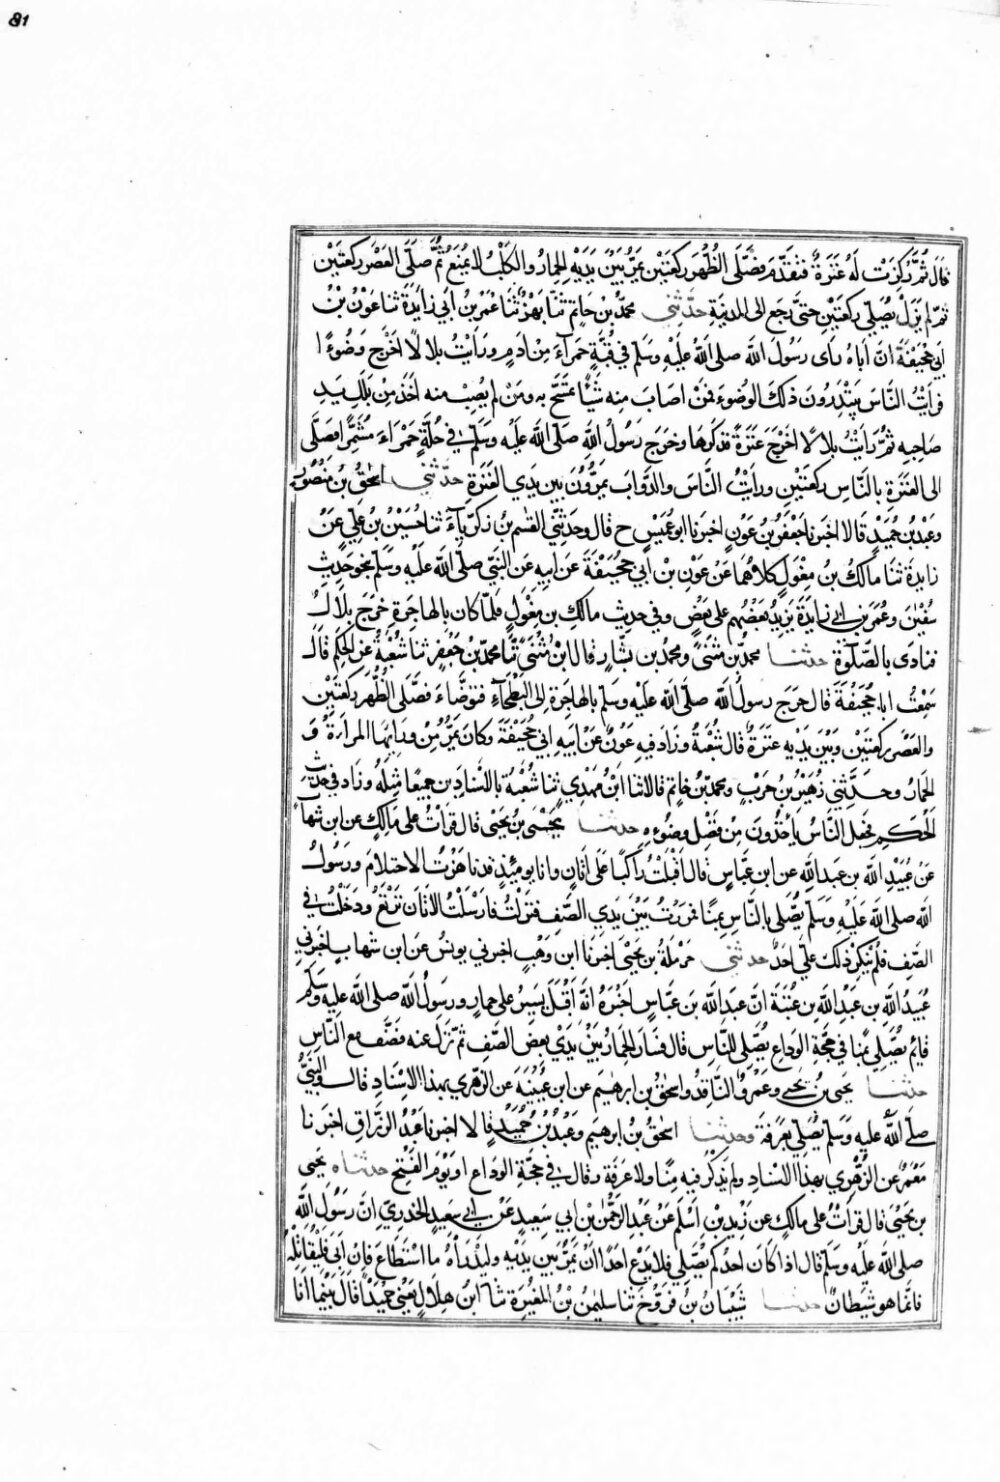 81
قال ثُمَّ رُكِزَتْ لَهُ عَنَزَةٌ فتقَدَّمَ فصَلَّى الظُهْرَ ركعَتَيْن يَمُرُّ بَيْنَ يَدَيْهِ الحِمارُ والكَلْبُ لا يُمْنَعُ ثُمَّ صَلَّى العَصْرَ ركعَتَيْن
ثمّ لم يَزَلْ يُصَلّي ركعَتَيْن حتّى رَجع الى المدينةِ حدّثني محمّدُ بن حَاتِم ثنا بَهْزٌ ثنا عُمَرُ بن أبي زايدَة ثنا عَوْنُ بْنُ
أبي جُحَيْفَةَ انَّ أباهُ رأى رسُولَ الله صلى اللهُ عليْهِ وسَلّم في قُبَّةٍ حمرآءَ مِنْ ادَمٍ ورَأيْتُ بلالًا أخْرَج وضُوءًا
فرأيْتُ النَّاسَ يَبْتَدِرُونَ ذلك الوضُوءَ فمَنْ اصَابَ منه شَيْئًا تمَسَّحَ به ومَنْ لم يُصِبْ منه أخَذَ مِن بَلَلِ يَدِ
صَاحِبِهِ ثُمَّ رَأيْتُ بلالًا أخْرَجَ عَنَزَةً فركزَها وخرَجَ رَسُولُ اللهِ صَلّى الله عليْه وسَلّم في حُلَّةٍ حَمْرَاءَ مُشَمِّرًا فصَلَّى
الى العَنَزَةِ بالنَّاسِ ركعتَيْنِ ورأيْتُ النَّاسَ والدَّوَابَ يَمُرُّونَ بَيْنَ يدَي العَنَزَةِ حدّثني اسحٰقُ بْنُ مَنْصُورٍ
وعَبْدُ بْنُ حُمَيْدٍ قَالا اخبرَنا جَعْفَرُ بْنُ عَوْنٍ اخبرنا ابو عُمَيْسٍ ح قال وحَدّثني القٰسِم بْنُ زكرِيّاءَ ثنا حُسَيْنُ بْنُ عَلِيٍّ عَنْ
زايدَةَ ثنا مالكُ بن مِغْوَلٍ كلاهُما عَن عَوْن بن أبي جُحَيْفَةَ عَن ابيهِ عَن النَبِيّ صلّى اللهُ علَيْهِ وسَلّم بنحوِ حَديثِ
سُفْيٰنَ وعُمَرَ بن أبي زايدَةَ يَزيدُ بَعْضُهُم على بعْضٍ وفي حديثِ مالك بن مِغْوَلٍ فلمّا كان بالهاجِرَةِ خرَج بلالٌ
فنادَى بالصّلٰوةِ حدثنا محمدُ بْنُ مُثَنّى ومحمدُ بن بشّارٍ قال ابْنُ مُثَنّى ثنا محمدُ بْنُ جَعْفَرٍ ثنا شُعْبَةُ عن الحَكَم قال
سَمِعْتُ ابا جُحَيْفَةَ قال خَرَجَ رسولُ الله صلّى الله علَيْهِ وسَلّم بالهاجرَةِ إلى البَطْحاءِ فتوضّاءَ فصَّلى الظُّهرَ ركعتَيْنِ
والعَصْرَ ركعتَيْنِ وبَيْنَ يدَيْهِ عَنَزَةٌ قال شُعْبَةُ وزادَ فيهِ عَوْنٌ عَنْ أبيهِ أبي جُحَيْفَةَ وكان يَمُرُّ مِنْ ورَائِها المرأَةُ و
الحِمارُ وحَدَّثني زُهَيْرُ بْنُ حَرْبٍ ومحمدُ بْنُ حَاتِم قالا ثنا ابْنُ مَهْدِي ثنا شُعْبَةُ بالاسْنادَيْنِ جميعًا مِثلَهُ وزاد في حديثِ
الحَكَمِ فجعَلَ النَّاسُ يَأخُذُونَ مِنْ فَضْلِ وَضُوءِهِ حدثنا يَحْيَى بن يَحْيى قال قرأتُ على مالكٍ عن ابن شهابٍ
عَنْ عُبَيْدِ اللهِ بن عَبدِ اللهِ عن ابن عَبّاسٍ قال أقْبَلْتُ راكبًا عَلَى أتَانٍ وانا يومَئِذٍ قد ناهَزْتُ الاحتلامَ ورَسُولُ
الله صلى الله عَلَيْهِ وسَلّم يُصَلّي بالنَّاسِ بِمِنًا فمَرَرْتُ بَيْنَ يَدَي الصَّفِ فنَزَلْتُ فأرْسَلْتُ الاتانَ تَرْتَعُ ودَخَلْتُ في
الصَّفِ فلَمْ يُنكِرْ ذلك عَلَيّ احَدٌ حدثني حَرْمَلَةُ بن يَحْيى اخبرنا ابن وَهْبٍ اخبرني يونسُ عَن ابن شهابٍ اخبرَني
عُبَيْدُ الله بن عَبْدِ اللهِ بن عُتْبَةَ انّ عَبدَ الله بن عَبّاسٍ اخْبَرَهُ انَّهُ أقْبَلَ يَسِيرُ على حمارٍ ورَسُولُ الله صلى الله عليْه وسَلّم
قائِمٌ يُصَّلي بمنًا في حجّةِ الودَاعِ يُصَّلي للنَّاسِ قال فسَارَ الحِمارُ بَيْنَ يَدَيْ بعضِ الصَّفِ ثمّ نَزَلَ عنه فَصَّفَ مع النّاسِ
حدثنا يحيَى بْنُ يَحيى وعَمْرٌو النَّاقِدُ واسحٰقُ بْنُ ابرهيمَ عن ابن عُيَيْنَةَ عن الزهْرِي بهذا الإسْنادِ قال والنَّبيُّ
صلّى اللهُ عليْه وسَلّم يُصَلّي بعَرَفَةَ وحدثنا اسحٰقُ بْنُ ابرهيم وعَبْدُ بْنُ حُمَيْدٍ قالا اخبرنا عَبْدُ الرَّزاقِ اخبَرَنا
مَعْمَرٌ عن الزُّهْرِي بهذا الاسنادِ ولم يَذكُرْ فيه مِنًا ولا عَرَفَةَ وقال في حجّةِ الودَاعِ او يَوْمَ الفَتْحِ حدثنا يحيى
بن يَحْيَى قال قرأتُ على مالكٍ عن زَيْدِ بْنِ أسْلَمَ عَنْ عَبْدِ الرَّحْمٰنِ بن ابي سَعِيدٍ عَنْ ابي سَعِيدٍ الخدرِيّ انّ رَسُولَ اللهِ
صلى اللهُ عليْه وسَلّم قال اذا كَان احدُكم يُصَّلي فلا يَدَعْ احَدًا ان يَمُرّ بَيْنَ يدَيْهِ وليَدْرَأْهُ ما اسْتَطاعَ فإنْ أبَى فليُقاتِلْهُ
فانّما هو شَيطانٌ حدثنا شَيْبَانُ بْنُ فرُّوخَ ثنا سليمٰنُ بْنُ المُغيرَة ثنا ابْنُ هِلالٍ يَعْني حُمَيْدًا قال بَيْنَما أنا